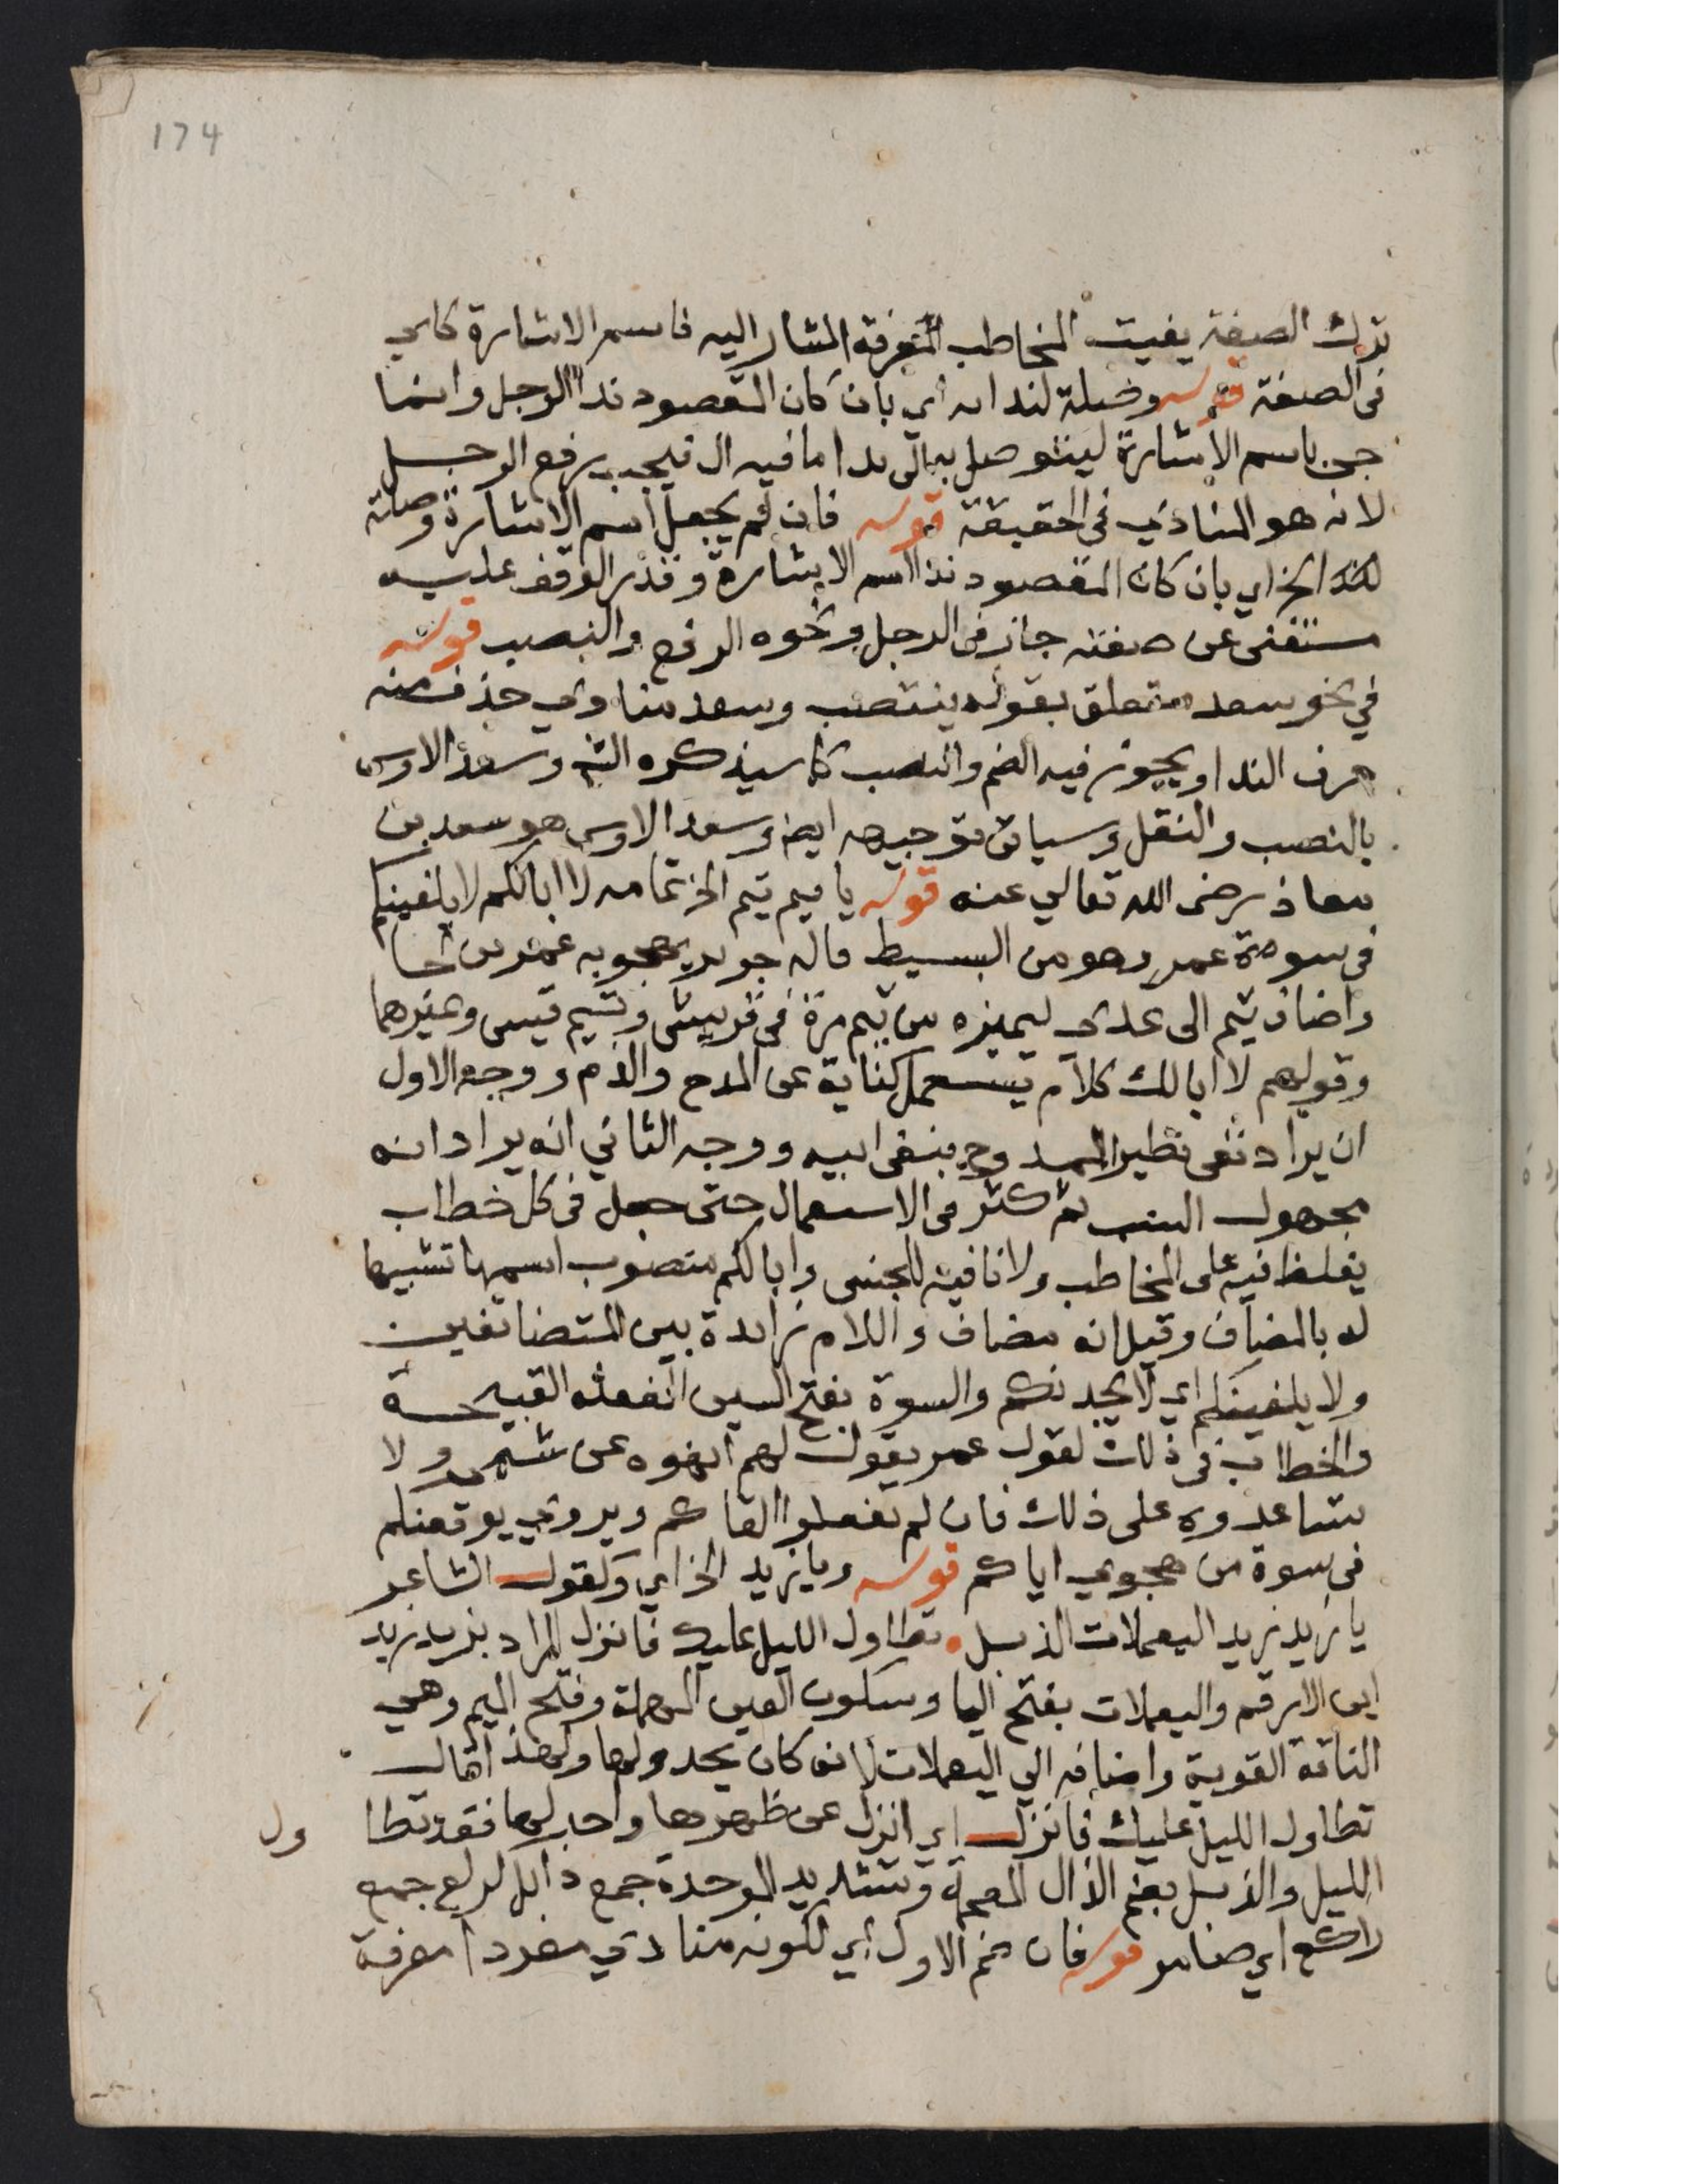 174
ترك الصفة يفيت المخاطب المعرفة المشار اليه فاسم الاشارة كاي
في الصفة قوله وصلة لندايه اي بان كان المقصود ندا الرجل وانما
جي باسم الاشارة ليتوصل به الى ندا ما فيه ال فيجب رفع الرجل
لانه هو المنادي في الحقيقة قوله فان لم يجعل اسم الاشارة وصلة
لندا الخ اي بان كان المقصود ندا اسم الاشارة وقدر الوقف عليه
مستغنى عن صفته جاز في الرجل ونحوه الرفع والنصب قوله
في نحو سعد متعلق بقوله ينتصب وسعد منادي حذف منه
حرف الندا ويجوز فيه الضم والنصب كما سيذكره الش وسعد الاوس
بالنصب والنقل وسياتي توجيهه ايض وسعد الاوس هو سعد بن
معاذ رضى الله تعالي عنه قوله يا تيم تيم الخ تمامه لا ابا لكم لا يلفينكم
في سوءة عمر وهو من البسيط قاله جرير يهجو به عمر بن لجا
واضاف تيم الى عدي ليميزه من تيم مرة في قريش وتيم قيس وغيرهما
وقولهم لا ابا لك كلام يستعمل كناية عن المدح والذم ووجه الاول
ان يراد نفي نظير الممدوح بنفي ابيه ووجه الثاني انه يراد انه
مجهول النسب ثم كثر في الاستعمال حتى جعل في كل خطاب
يغلظ فيه على المخاطب ولا نافية للجنس وابا لكم منصوب اسمها تشبيها
له بالمضاف وقيل انه مضاف واللام زايدة بين المتضايفين
ولا يلفينكم اي لا يجدنكم والسوة بفتح السين الفعلة القبيحة
والخطاب في ذلك لقوم عمر يقول لهم انهوه عن شتمي ولا
تساعدوه على ذلك فان لم تفعلوا القاكم ويروي يوقعنكم
في سوة من هجوي اياكم قوله ويا زيد الخ اي وكقول الشاعر
يا زيد زيد اليعملات الذبل تطاول الليل عليك فانزل المراد بزيد زيد
ابن الارقم واليعملات بفتح اليا وسكون العين المهملة وفتح الميم وهي
الناقة القوية واضافه الي اليعملات لانه كان يحدو لها ولهذا قال
تطاول الليل عليك فانزل اي انزل عن ظهرها واحد لها فقد تطا ول
الليل والذبل بضم الذال المعجمة وتشديد الموحدة جمع ذابل كركع جمع
راكع اي ضامر قوله فان ضم الاول اي لكونه منادي مفردا معرفة